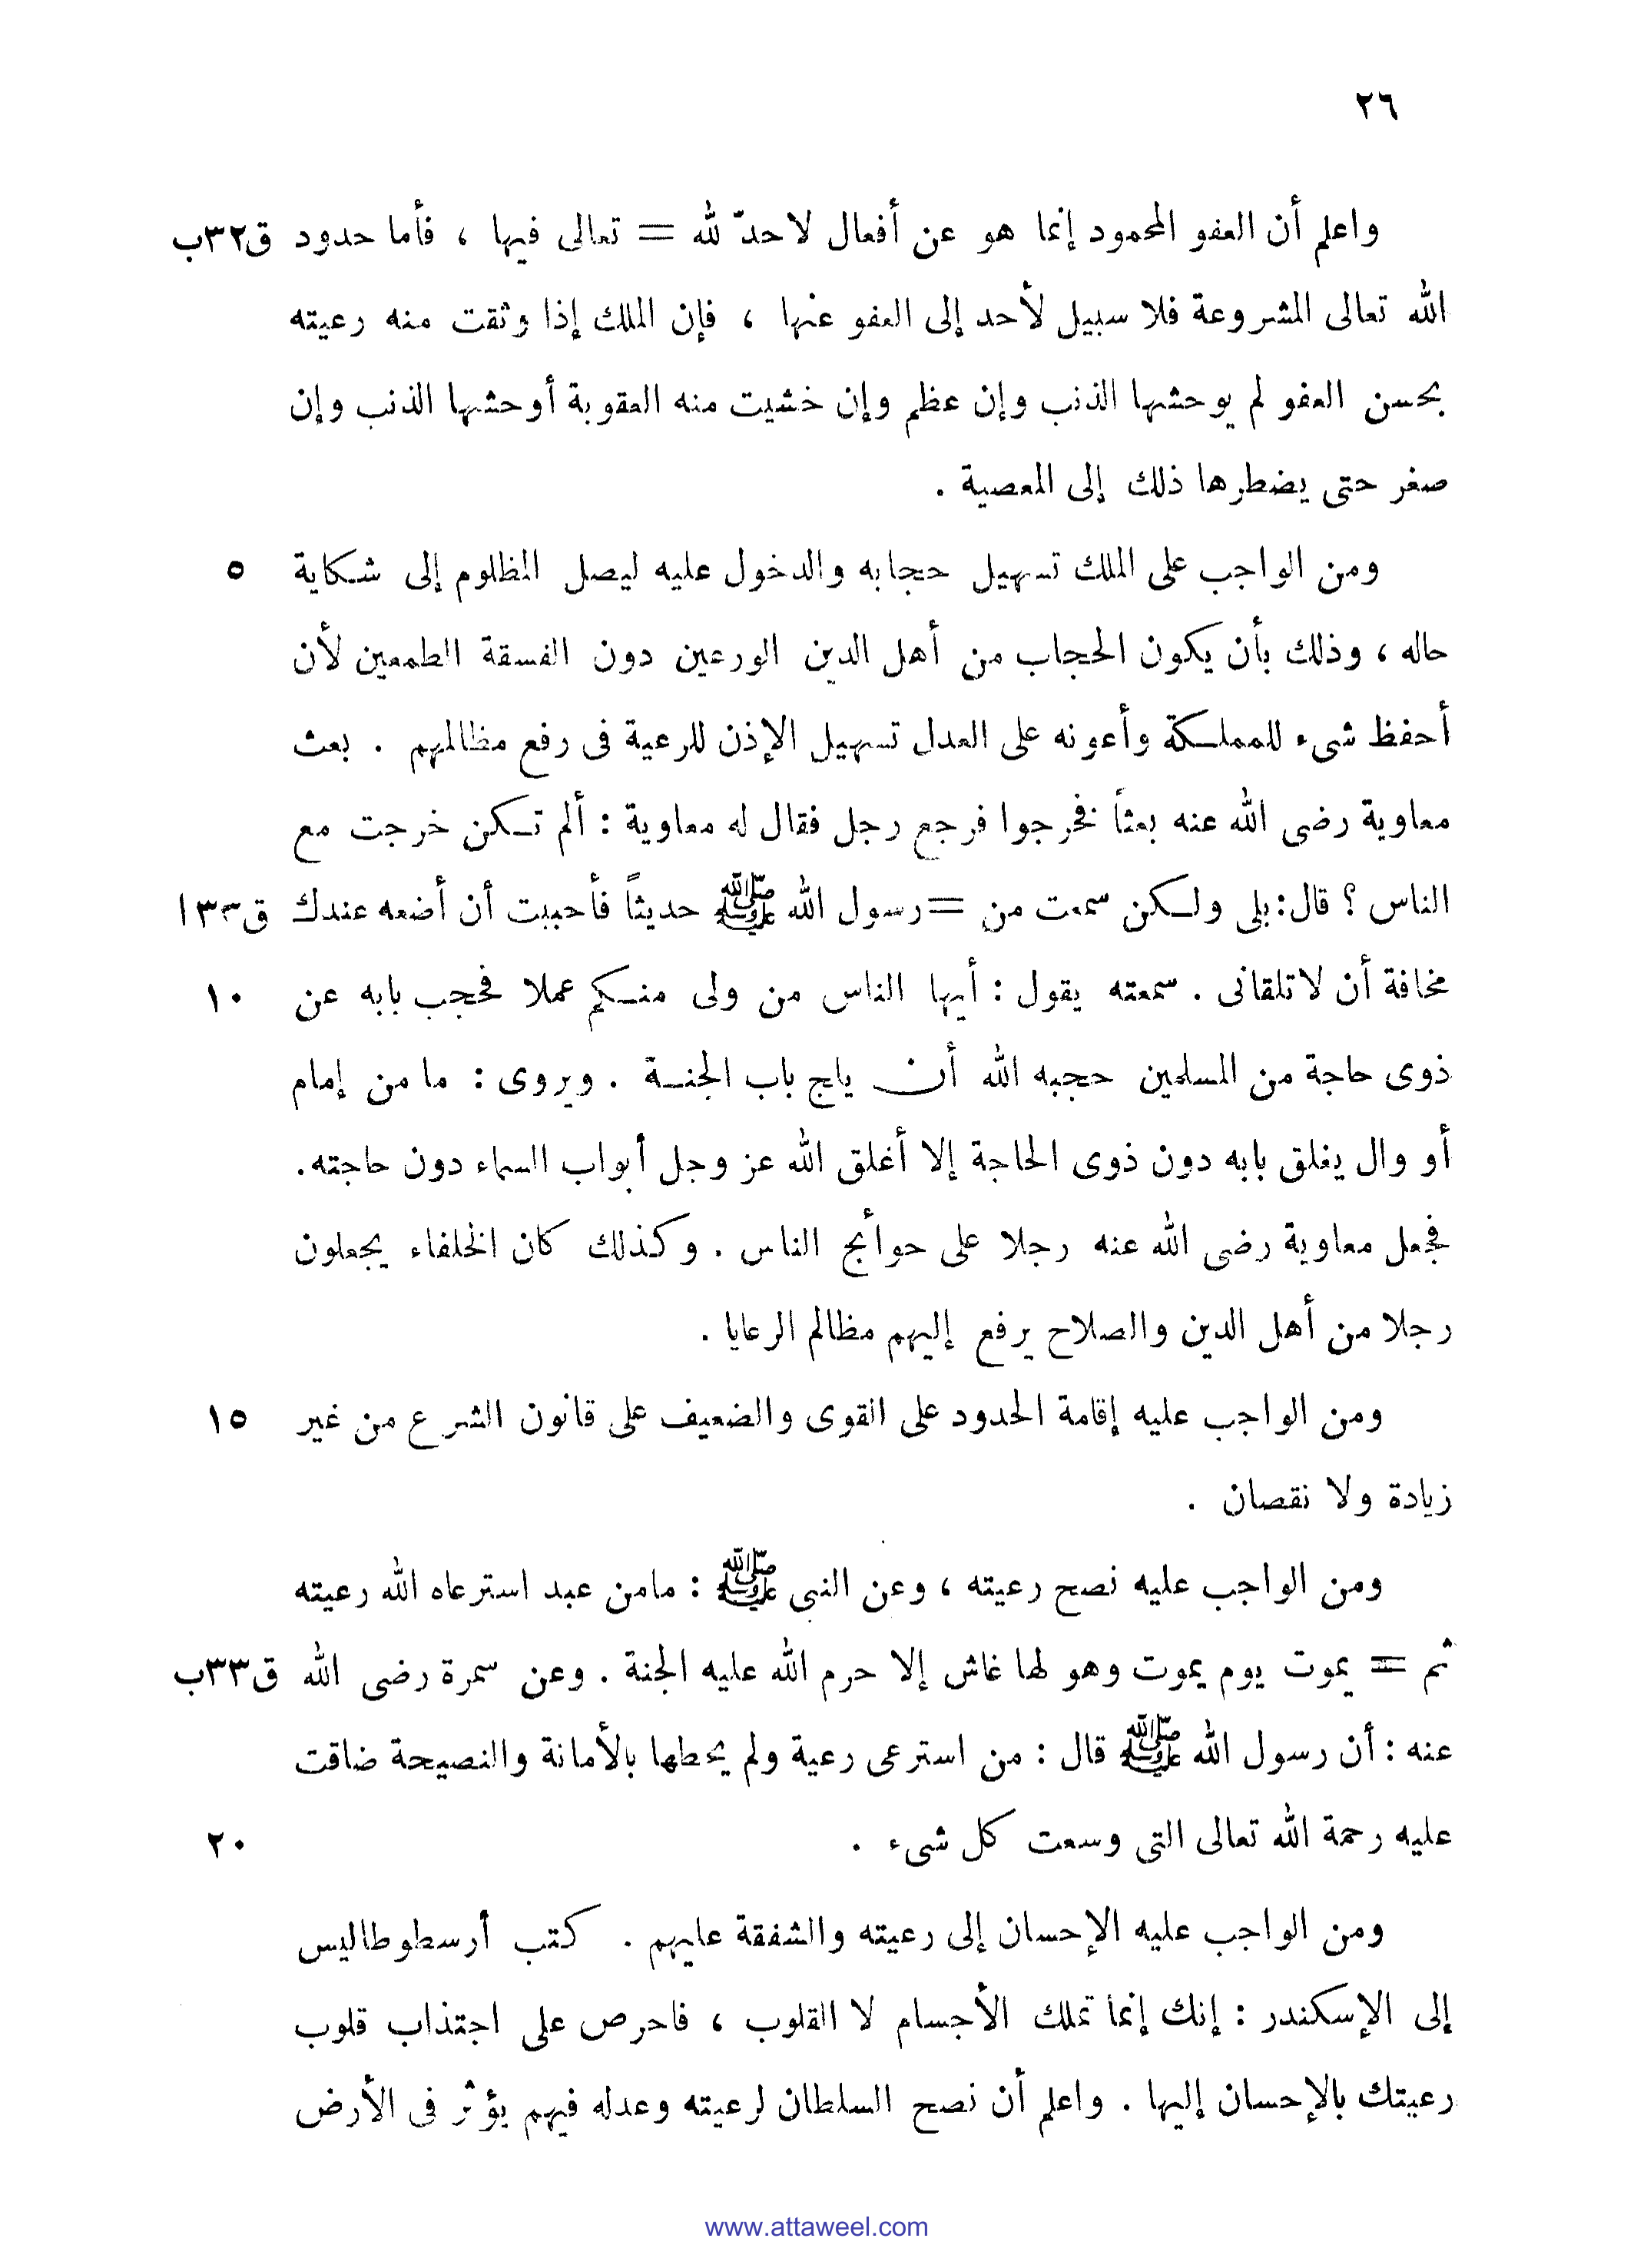 ٢٦
واعلم أن العفو المحمود إنما هو عن أفعال لا حدّ لله = تعالى فيها ، فأما حدود ق٣٢ب
الله تعالى المشروعة فلا سبيل لأحد إلى العفو عنها ، فإن الملك إذا وثقت منه رعيته
بحسن العفو لم يوحشها الذنب وإن عظم وإن خشيت منه العقوبة أوحشها الذنب وإن
صغر حتى يضطرها ذلك إلى المعصية .
ومن الواجب على الملك تسهيل حجابه والدخول عليه ليصل المظلوم إلى شكاية ٥
حاله ، وذلك بأن يكون الحجاب من أهل الدين الورعين دون الفسقة الطمعين لأن
أحفظ شىء للمملكة وأعونه على العدل تسهيل الإذن للرعية فى رفع مظالمهم . بعث
معاوية رضى الله عنه بعثاً فخرجوا فرجع رجل فقال له معاوية : ألم تكن خرجت مع
الناس ؟ قال: بلى ولكن سمعت من = رسول الله ﷺ حديثاً فأحببت أن أضعه عندك ق٣٣ا
مخافة أن لا تلقانى . سمعته يقول : أيها الناس من ولى منكم عملا فحجب بابه عن ١٠
ذوى حاجة من المسلمين حجبه الله أن ياج باب الجنة . ويروى : ما من إمام
أو وال يغلق بابه دون ذوى الحاجة إلا أغلق الله عز وجل أبواب السماء دون حاجته.
فجعل معاوية رضى الله عنه رجلا على حوأئج الناس . وكذلك كان الخلفاء يجعلون
رجلا من أهل الدين والصلاح يرفع إليهم مظالم الرعايا .
ومن الواجب عليه إقامة الحدود على القوى والضعيف على قانون الشرع من غير ١٥
زيادة ولا نقصان .
ومن الواجب عليه نصح رعيته ، وعن النبى ﷺ : مامن عبد استرعاه الله رعيته
ثم = يموت يوم يموت وهو لها غاش إلا حرم الله عليه الجنة . وعن سمرة رضى الله ق٣٣ب
عنه : أن رسول الله ﷺ قال : من استرعى رعية ولم يحطها بالأمانة والنصيحة ضاقت
عليه رحمة الله تعالى التى وسعت كل شىء . ٢٠
ومن الواجب عليه الإحسان إلى رعيته والشفقة عليهم . كتب أرسطوطاليس
إلى الإسكندر : إنك إنما تملك الأجسام لا القلوب ، فاحرص على اجتذاب قلوب
رعيتك بالإحسان إليها . واعلم أن نصح السلطان لرعيته وعدله فيهم يؤثر فى الأرض
www.attaweel.com